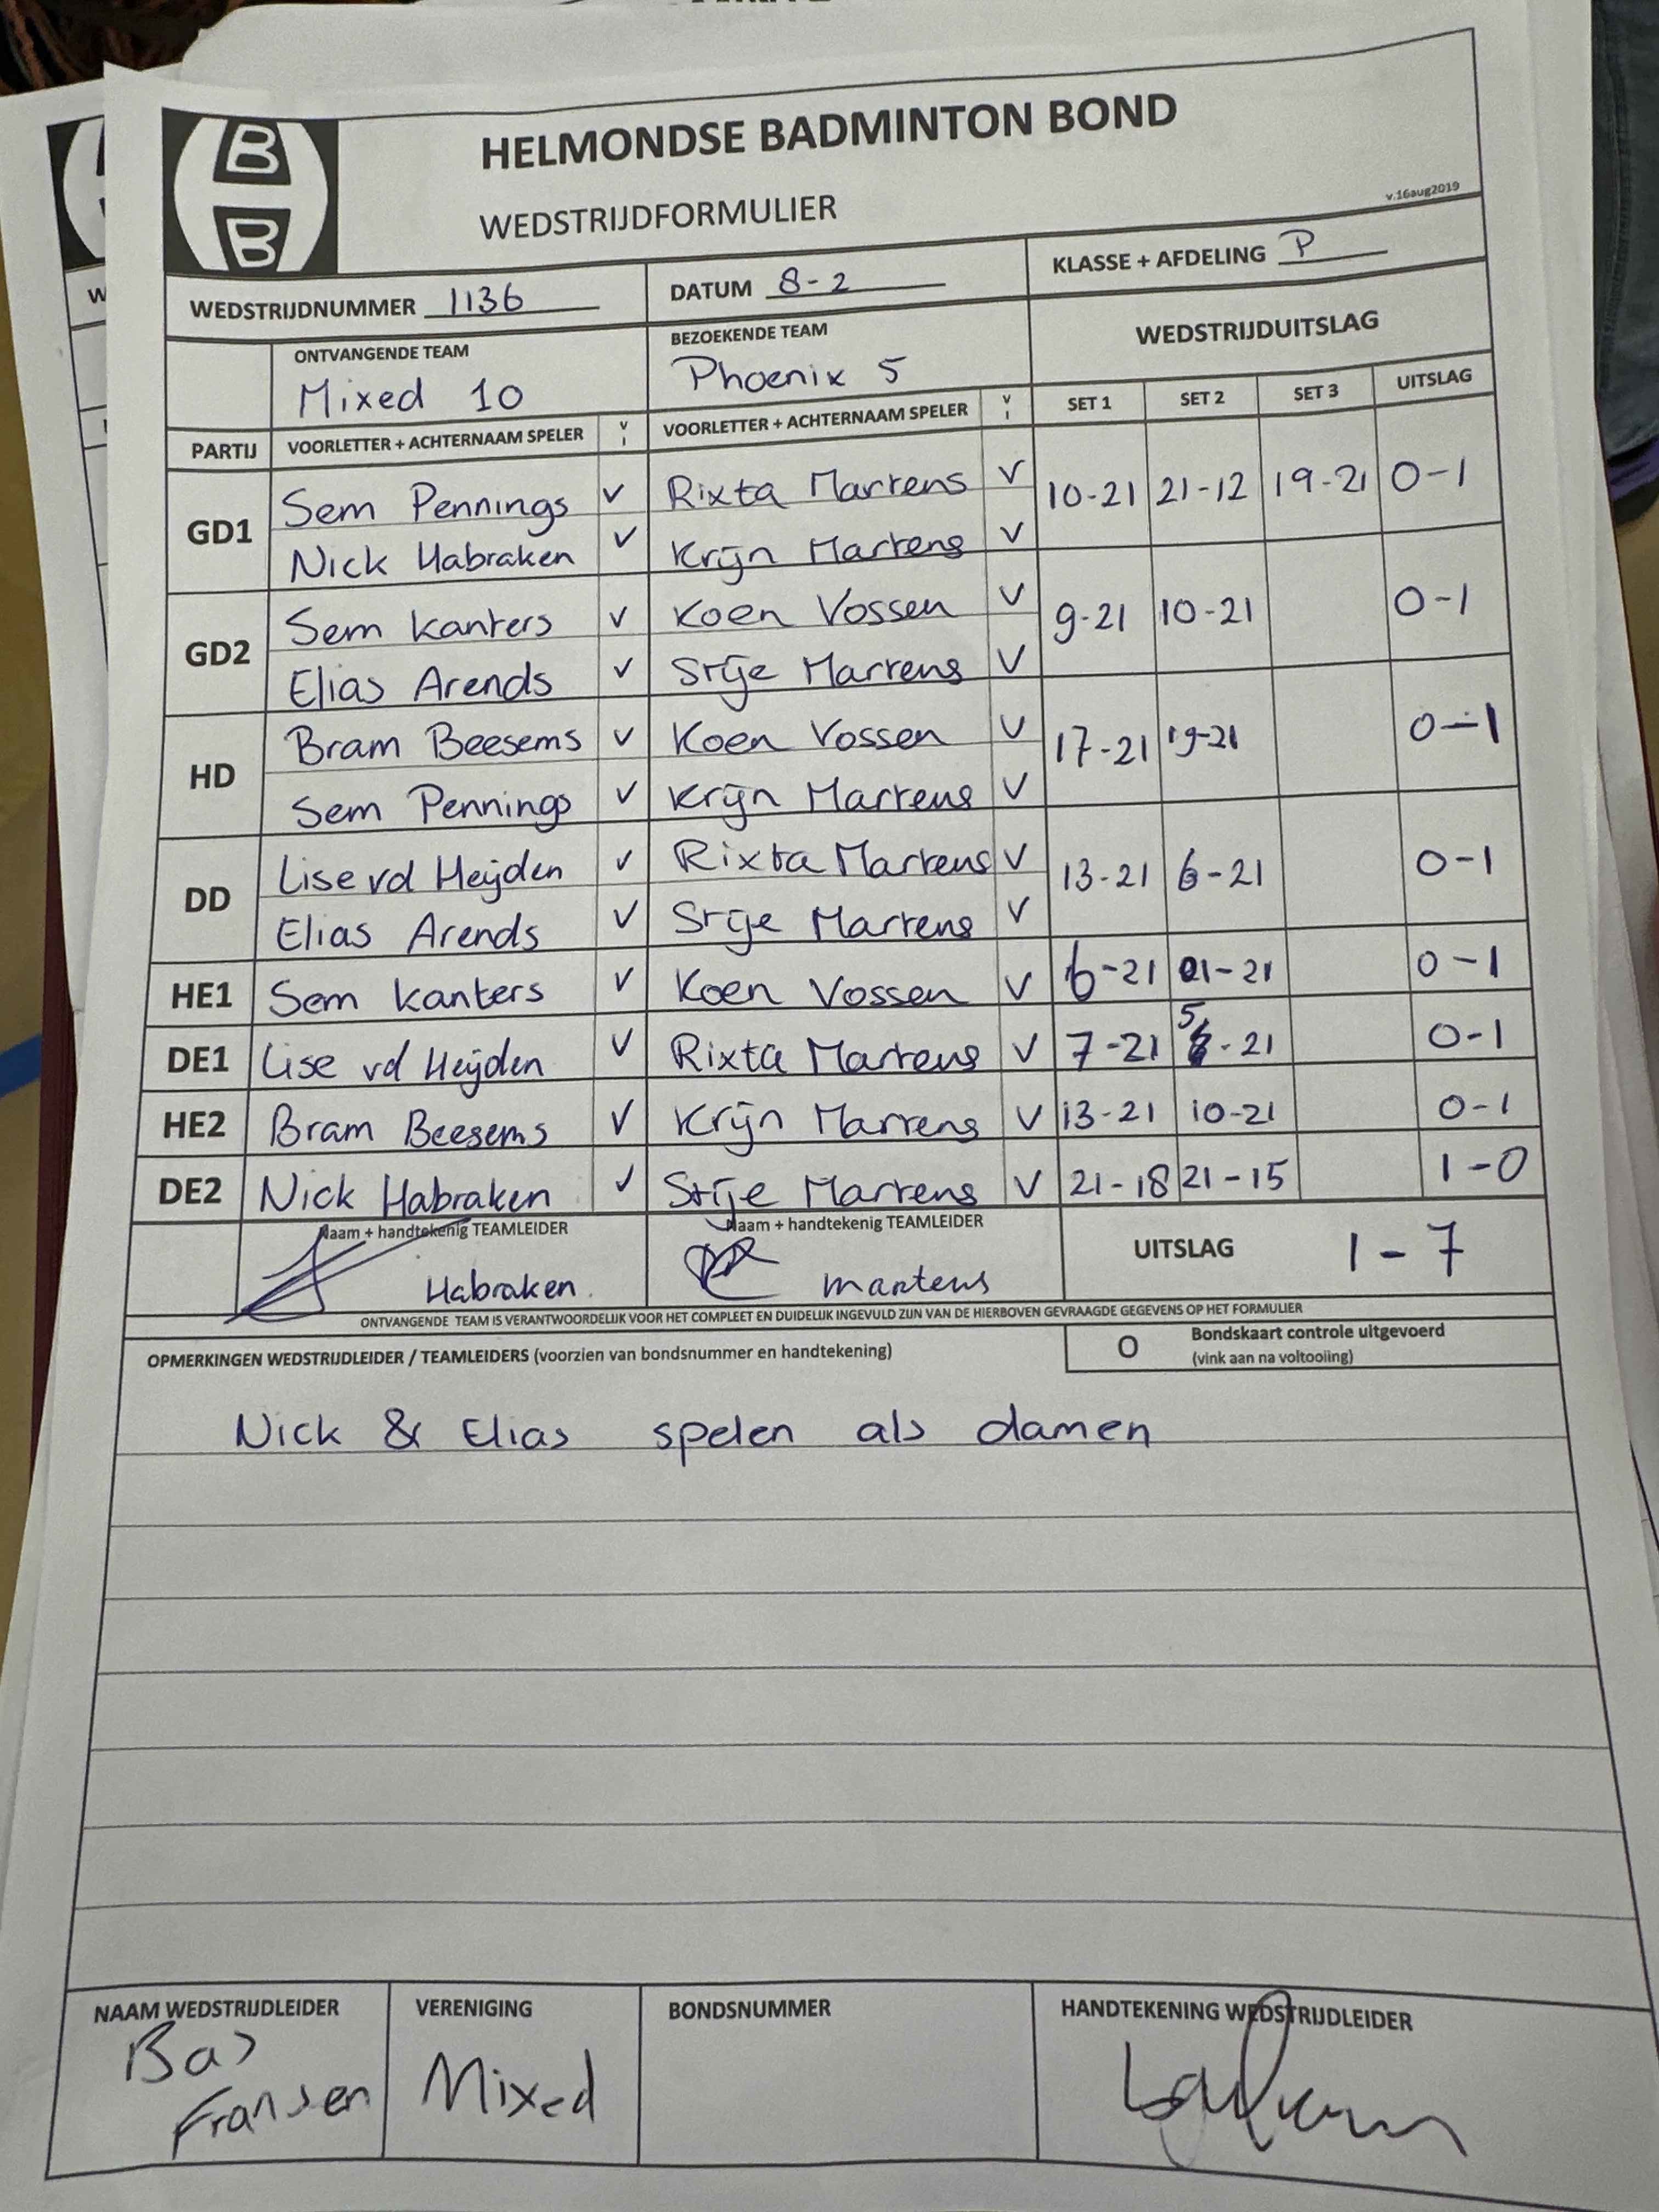 B
B
HELMONDSE BADMINTON BOND
WEDSTRIJDFORMULIER
v.16aug2019
WEDSTRIJDNUMMER 1136 DATUM 8-2 KLASSE + AFDELING P
ONTVANGENDE TEAM BEZOEKENDE TEAM WEDSTRIJDUITSLAG
Mixed 10 Phoenix 5
PARTIJ VOORLETTER + ACHTERNAAM SPELER V I VOORLETTER + ACHTERNAAM SPELER V I SET 1 SET 2 SET 3 UITSLAG
GD1 Sem Pennings V Rixta Martens V 10-21 21-12 19-21 0-1
Nick Habraken V Krijn Martens V
GD2 Sem Kanters V Koen Vossen V 9-21 10-21 0-1
Elias Arends V Stije Martens V
HD Bram Beesems V Koen Vossen V 17-21 19-21 0-1
Sem Pennings V Krijn Martens V
DD Lise vd Heijden V Rixta Martens V 13-21 6-21 0-1
Elias Arends V Stije Martens V
HE1 Sem Kanters V Koen Vossen V 6-21 -21 0-1
DE1 Lise vd Heijden V Rixta Martens V 7-21 5-21 0-1
HE2 Bram Beesems V Krijn Martens V 13-21 10-21 0-1
DE2 Nick Habraken V Stije Martens V 21-18 21-15 1-0
Naam + handtekenig TEAMLEIDER Naam + handtekenig TEAMLEIDER UITSLAG 1-7
Habraken. Martens
ONTVANGENDE TEAM IS VERANTWOORDELIJK VOOR HET COMPLEET EN DUIDELIJK INGEVULD ZIJN VAN DE HIERBOVEN GEVRAAGDE GEGEVENS OP HET FORMULIER
OPMERKINGEN WEDSTRIJDLEIDER / TEAMLEIDERS (voorzien van bondsnummer en handtekening) O Bondskaart controle uitgevoerd
(vink aan na voltooiing)
Nick & Elias spelen als damen
NAAM WEDSTRIJDLEIDER VERENIGING BONDSNUMMER HANDTEKENING WEDSTRIJDLEIDER
Bas
Fransen Mixed